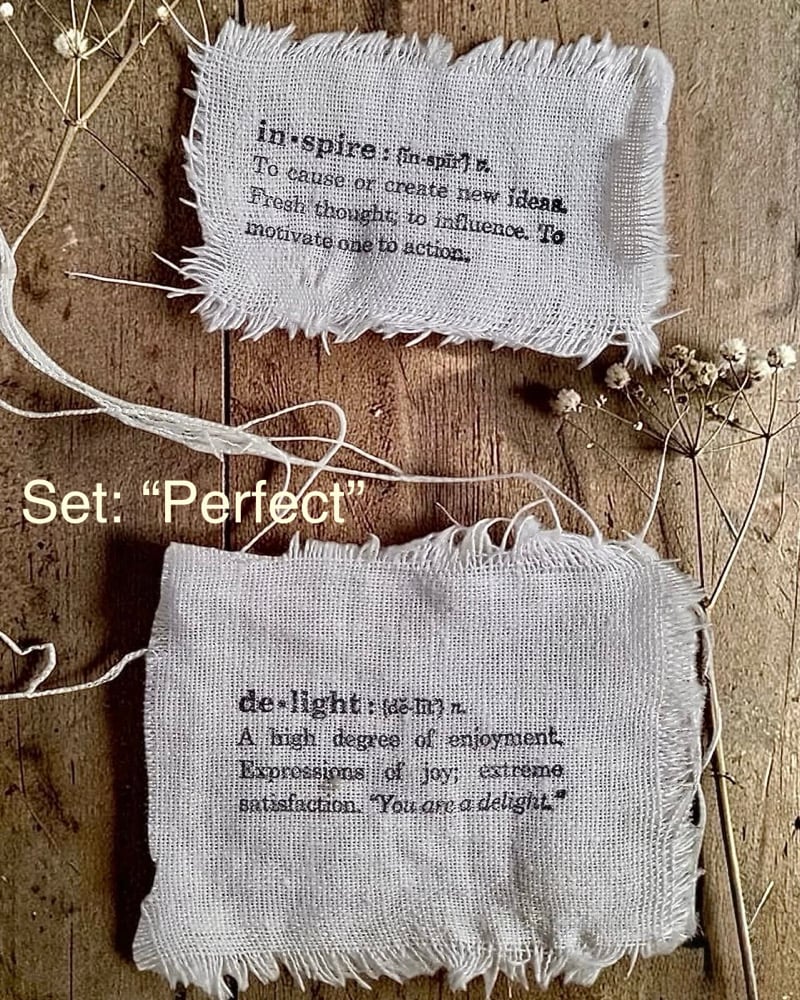 in•spire : {in-spīr'} n.
To cause or create new ideas.
Fresh thought; to influence. To
motivate one to action.
Set: “Perfect”
de•light : {dĕ-līt'} n.
A high degree of enjoyment.
Expressions of joy; extreme
satisfaction. “You are a delight.”